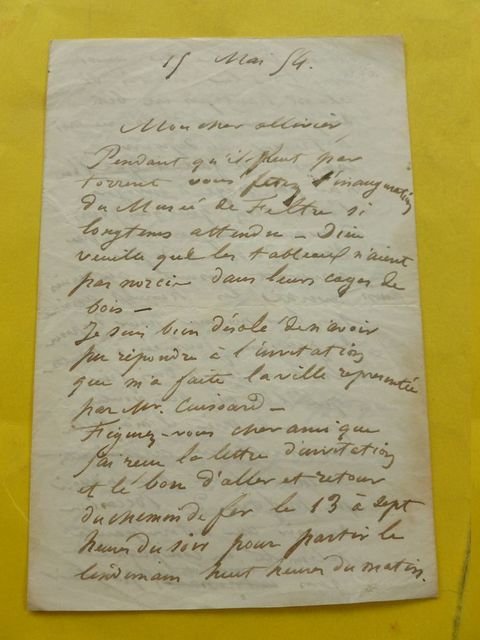 15 Mai 54.
Mon cher ollivier,
Pendant qu'il pleut par
torrent vous fêtez l'inauguration
du Musée de Feltre si
longtems attendu – Dieu
veuille que les tableaux n'aient
pas noirci dans leurs cages de
bois –
Je suis bien désolé de n'avoir
pu répondre à l'invitation
que m'a faite la ville représentée
par Mr. Cuissard –
Figurez-vous cher ami que
j'ai reçu la lettre d'invitation
et le bon d'aller et retour
du chemin de fer le 13 à sept
heures du soir pour partir le
lendemain huit heures du matin.